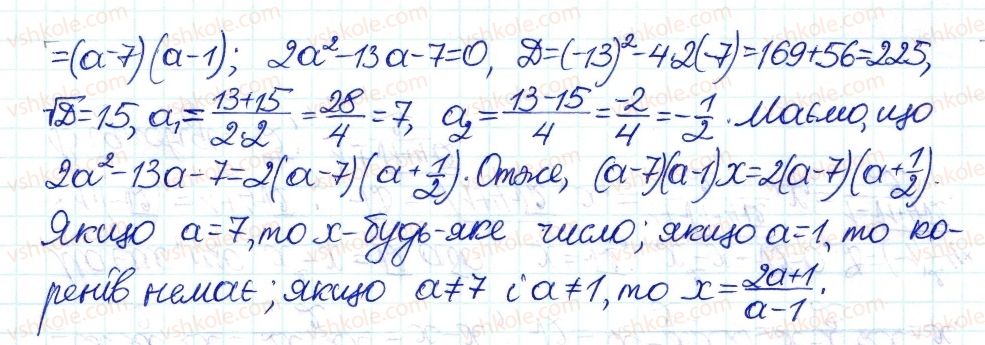 =(a-7)(a-1); 2a²-13a-7=0, D=(-13)²-4·2(-7)=169+56=225,
√D=15, a₁=(13+15)/(2·2)=28/4=7, a₂=(13-15)/4=-2/4=-1/2. Маємо, що
2a²-13a-7=2(a-7)(a+1/2). Отже, (a-7)(a-1)x=2(a-7)(a+1/2).
Якщо a=7, то x-будь-яке число; якщо a=1, то ко-
ренів немає; якщо a≠7 і a≠1, то x=(2a+1)/(a-1).